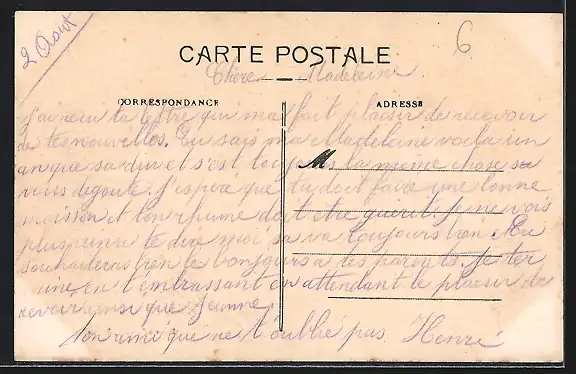 2 Aout
6
CARTE POSTALE
Chère Madeleine
CORRESPONDANCE
ADRESSE
j'ai recu ta lettre qui ma fait plaisir de recevoir
de tes nouvelles. Tu sais ma Madeleine voila un
an que sa dure et s'est toujours la même chose sa
vous dégoute. j'espère que tu doit faire une bonne
moisson et ton rhume doit être guérit. Je ne vois
plus rien a te dire moi sa va toujours bien. Tu
souhaiteras bien le bonjours a tes parents. Je ter
mine en t'embrassant en attendant le plaisir de
revoir ainsi que Jeanne.
M
ton ami que ne t'oublie pas Henri